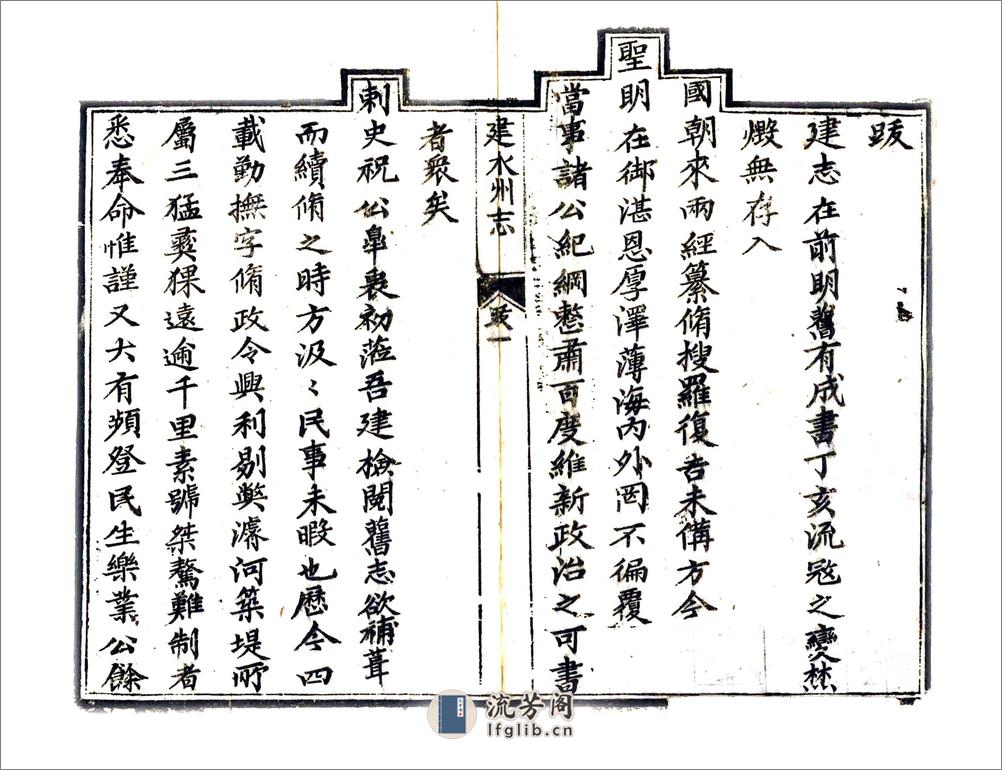 跋
建志在前明舊有成書丁亥流寇之變焚
燬無存入
國朝來兩經纂脩搜羅復吿未備方今
聖明在御湛恩厚澤薄海內外罔不徧覆
當事諸公紀綱整肅百度維新政治之可書
建水州志
跋一
者衆矣
刺史祝公臯裘初蒞吾建檢閱舊志欲補葺
而續脩之時方汲〻民事未暇也歷今四
載勤撫字脩政令興利剔獘濬河築堤所
屬三猛彞猓遠逾千里素號桀驁難制者
悉奉命惟謹又大有頻登民生樂業公餘
流芳阁
lfglib.cn